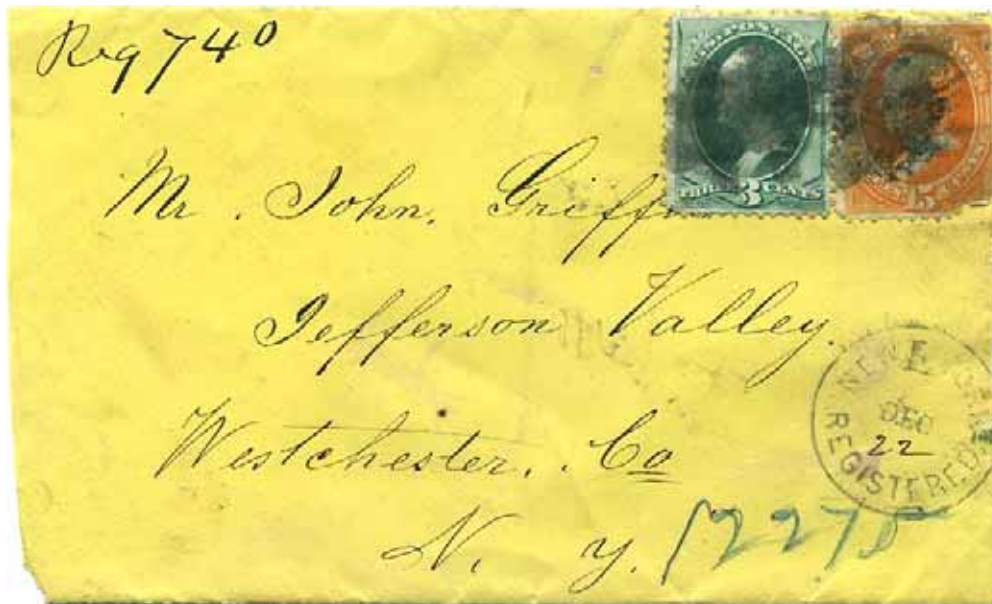 Reg 740
U.S. POSTAGE
THREE 3 CENTS
15 CENTS
Mr. John,
Jefferson Valley.
Westchester, Co
N. Y. 12275
NEW
DEC
22
REGISTERED